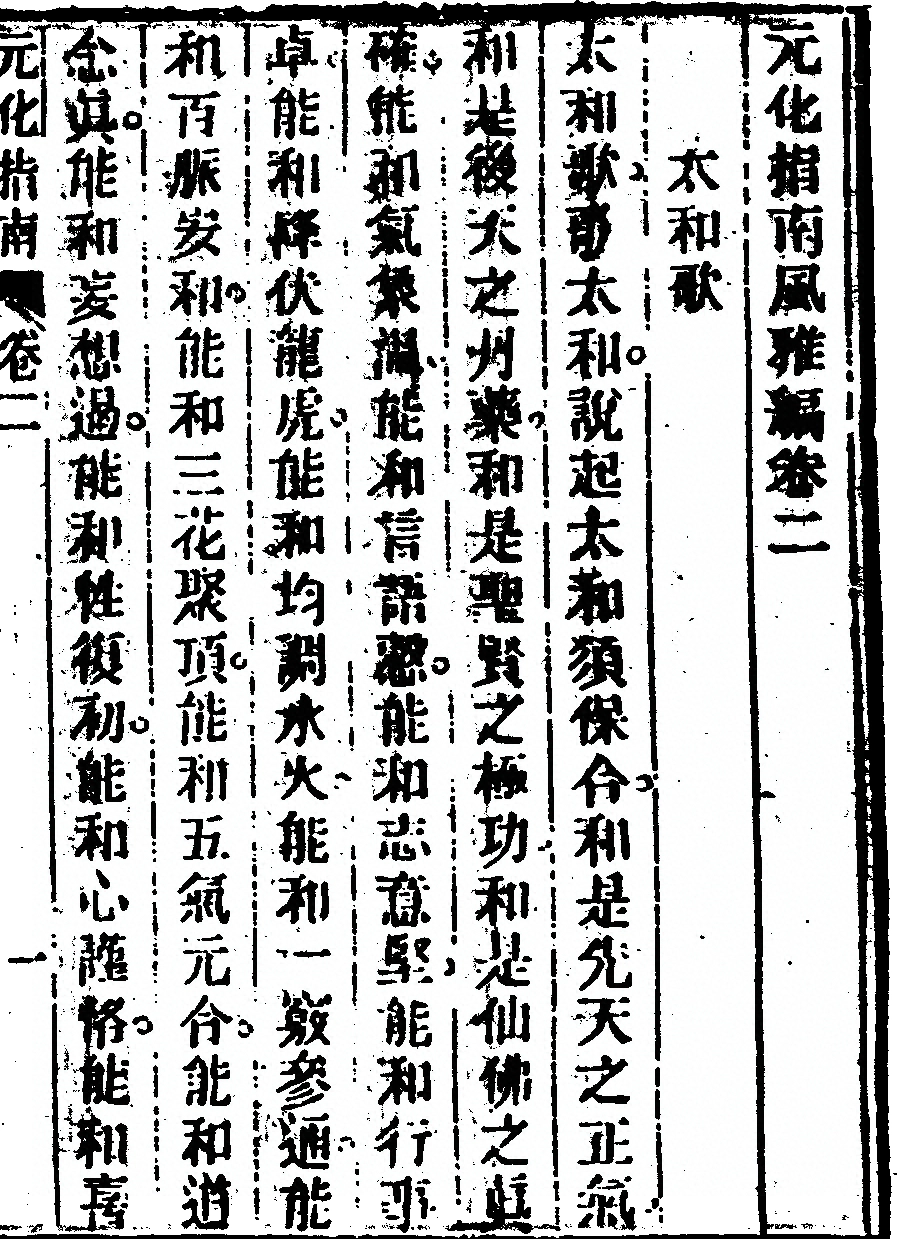 元化指南風雅編卷二
太和歌
太和歌那太和說起太和須保合和是先天之正氣
和是後天之州藥和是聖賢之極功和是仙佛之真
確能和氣象溫能和信語愨能和志意堅能和行事
卓能和降伏龍虎能和均調水火能和一竅參通能
和百脈安和能和三花聚頂能和五氣元合能和道
念眞能和妄想過能和性復初能和心謹恪能和喜
元化指南
卷二
一